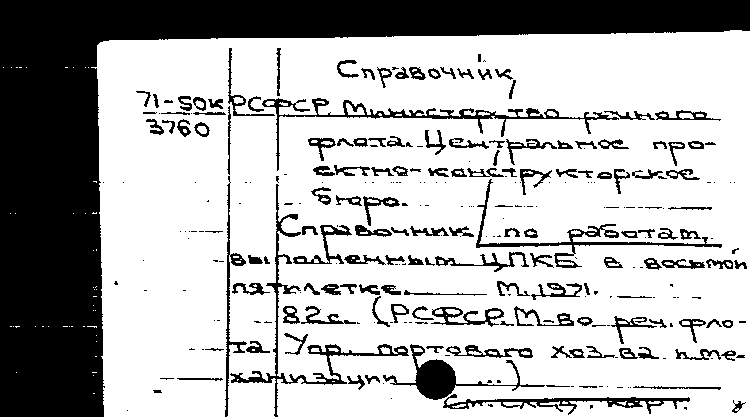 Справочник
71-50к РСФСР. Министерство речного
3760
флота. Центральное про-
ектно-конструкторское
бюро.
Справочник по работам,
выполненным ЦПКБ в восьмой
пятилетке. М., 1971.
82с. (РСФСР. М-во реч. фло-
та. Упр. портового хоз-ва и ме-
ханизации ...)
См. след. карт.